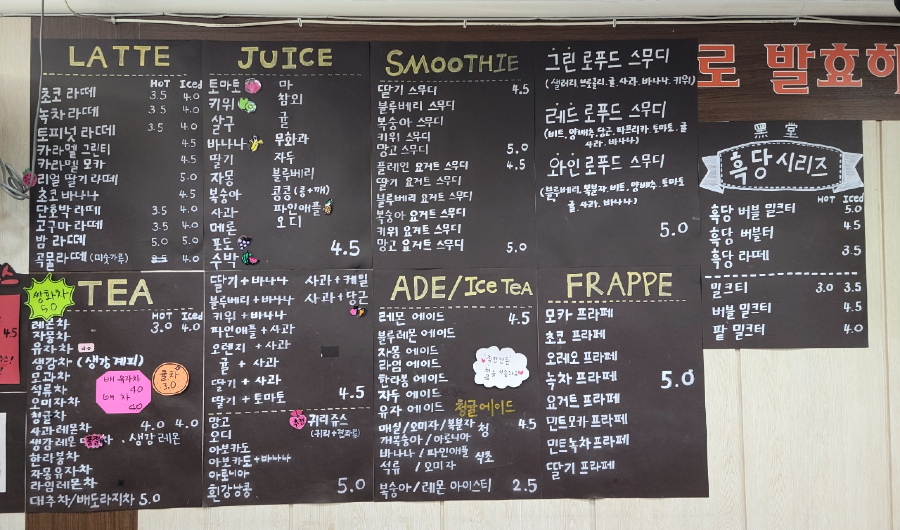 LATTE
HOT Iced
초코 라떼 3.5 4.0
녹차 라떼 3.5 4.0
토피넛 라떼 3.5 4.0
카라멜 그린티 4.5
카라멜 모카 4.5
리얼 딸기 라떼 5.0
초코 바나나 4.5
단호박 라떼 3.5 4.0
고구마 라떼 3.5 4.0
밤 라떼 5.0 5.0
곡물라떼 (미숫가루) 4.0
JUICE
토마토 마
키위 참외
살구 귤
바나나 무화과
딸기 자두
자몽 블루베리
복숭아 콩콩(콩+깨)
사과 파인애플
메론 오디
포도 4.5
수박
SMOOTHIE
딸기 스무디 4.5
블루베리 스무디
복숭아 스무디
키위 스무디
망고 스무디 5.0
플레인 요거트 스무디 4.5
딸기 요거트 스무디
블루베리 요거트 스무디
복숭아 요거트 스무디
키위 요거트 스무디
망고 요거트 스무디 5.0
그린 로푸드 스무디
(샐러리, 브로콜리, 귤, 사과, 바나나, 키위)
레드 로푸드 스무디
(비트, 양배추, 당근, 파프리카, 토마토, 귤
사과, 바나나)
와인 로푸드 스무디
(블루베리, 복분자, 비트, 양배추, 토마토
귤, 사과, 바나나)
5.0
로 발효하
黑 堂
흑당 시리즈
HOT Iced
흑당 버블 밀크티 5.0
흑당 버블티 4.5
흑당 라떼 3.5
밀크티 3.0 3.5
버블 밀크티 4.5
팥 밀크티 4.0
쌍화차
5.0
TEA
HOT ICED
레몬차 3.0 4.0
자몽차
유자차 4.0
생강차 (생강계피)
모과차
석류차
오미자차
청귤차
사과레몬차 4.0 4.0
생강레몬 · 생강레몬
한라봉차
자몽유자차
라임레몬차
대추차/배도라지차 5.0
4.0
배차
4.0
귤차
3.0
딸기 + 바나나 사과 + 케일
블루베리 + 바나나 사과 + 당근
키위 + 바나나
파인애플 + 사과
오렌지 + 사과
귤 + 사과
딸기 + 사과
딸기 + 토마토 4.5
망고 귀리쥬스
오디
아보카도
아보카도+바나나
아로니아
흰강낭콩 5.0
ADE/Ice TeA
레몬 에이드 4.5
블루레몬 에이드
자몽 에이드
라임 에이드
한라봉 에이드
자두 에이드
유자 에이드 청귤에이드
매실/오미자/복분자 청 4.5
개복숭아/아로니아
바나나/파인애플 식초
석류 /오미자
복숭아/레몬 아이스티 2.5
FRAPPE
모카 프라페
초코 프라페
오레오 프라페
녹차 프라페 5.0
요거트 프라페
민트모카 프라페
민트녹차 프라페
딸기 프라페
4.5